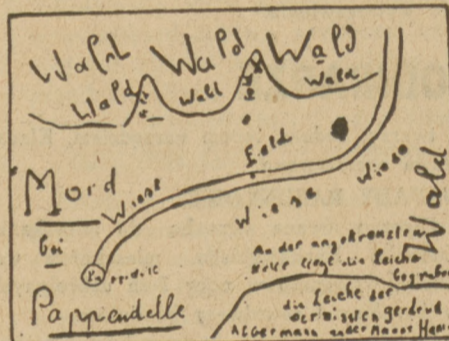 Wald Wald Wald
Wald Wald Wald
Feld
Mord Wiese Wiese
bei Wiese Wald
Pappendelle
An der angekreuzten
Stelle liegt die Leiche
begraben
die Leiche der
vermissten Gertrud
Albermann an der Mauer